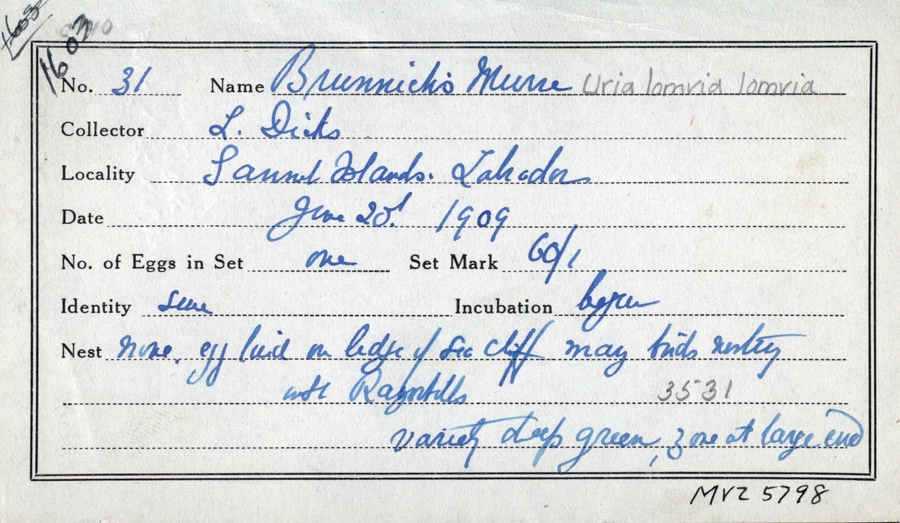 1603
1603
No. 31 Name Brunnich's Murre Uria lomvia lomvia
Collector L. Dicks
Locality Islands. Labrador
Date June 20! 1909
No. of Eggs in Set one Set Mark 60/1
Identity sure Incubation begun
Nest None. egg laid on ledge of sea cliff many birds nesting
with Razorbills 3531
variety deep green, zone at large end
MVZ 5798